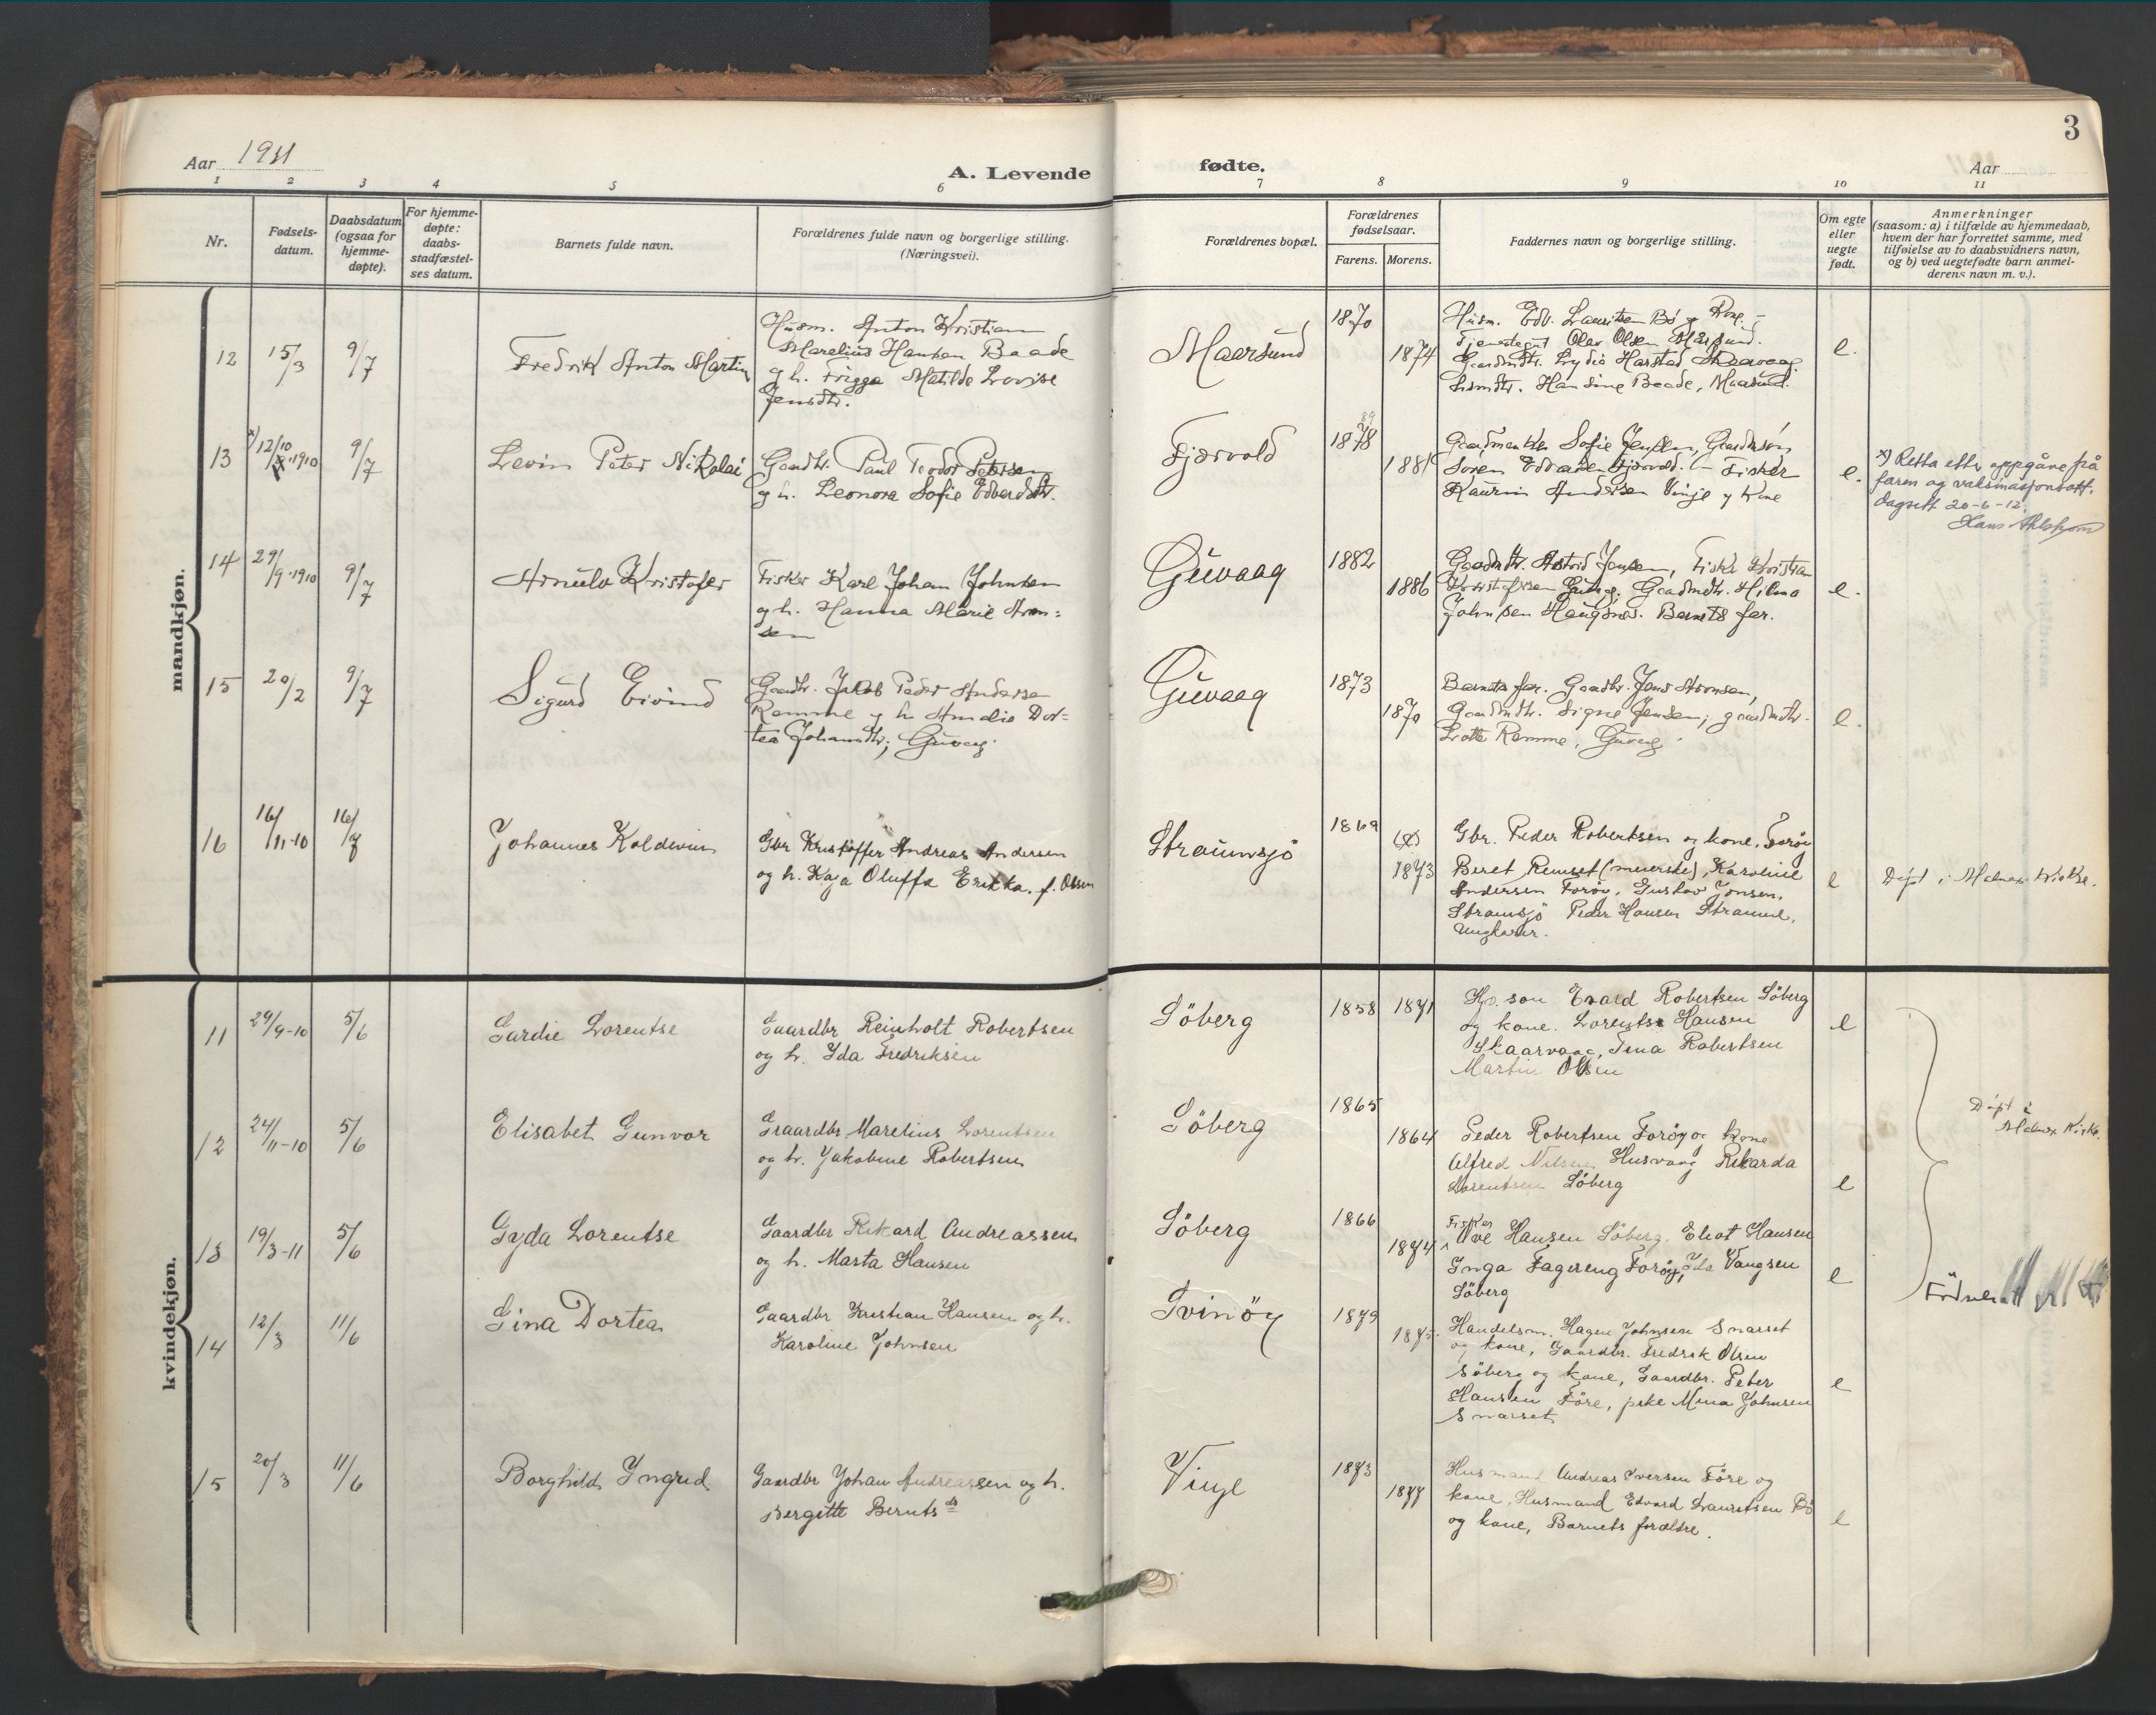 3
Aar 1911
A. Levende
fødte.
Aar
1 2 3 4 5 6 7 8 9 10 11
Nr.
Fødsels-
datum.
Daabsdatum
(ogsaa for
hjemme-
døpte).
For hjemme-
døpte:
daabs-
stadfæstel-
ses datum.
Barnets fulde navn.
Forældrenes fulde navn og borgerlige stilling.
(Næringsvei).
Forældrenes bopæl.
Forældrenes
fødselsaar.
Farens. Morens.
Faddernes navn og borgerlige stilling.
Om egte
eller
uegte
født.
Anmerkninger
(saasom: a) i tilfælde av hjemmedaab,
hvem der har forrettet samme, med
tilføielse av to daabsvidners navn,
og b) ved uegtefødte barn anmel-
derens navn m. v.).
mandkjøn.
12
15/3
9/7
Fredrik Anton Martin
Husm. Anton Kristian
Marelius Hansen Baade
og h. Frigga Matilde Lovise
Jensdtr.
Maarsund
1870
1874
Husm. Edv. Lauritsen Bø og Kone
Tjenestegut Olav Olsen Mårsund.
Gaardmdtr. Lydia Harstad Skaarvaag.
Husmdtr. Hansine Baade, Maarsund.
e.
13
x) 12/10 1910
9/7
Levin Peter Nikolai
Gaardbr. Paul Teodor Petersen
og h. Leonora Sofie Edvardsdtr.
Fjærvold
89
1878
1881
Sofie Jensen, Gaardmsøn
Søren Edvardsen Fjærvold. - Fisker
Kaurin Andersen Vinje og Kone
e.
x) Retta etter oppgåve frå
faren og vaksinasjonsatt.
dagsett 20-6-12.
14
29/9-1910
9/7
Arnulv Kristofer
Fisker Karl Johan Johnsen
og h. Hanna Marie Aron=
sen
Guvaag
1882
1886
Gaardmdtr. Astrid Jensen, Fisker Kristian
Kristofersen Guvaag. Gaardmdtr. Hilma
Johnsen Haugsnes. Barnets far.
e.
15
20/2
9/7
Sigurd Eivind
Gaardbr. Jakob Peder Andersen
Remme og h. Amalie Dor=
tea Johansdtr, Guvaag
Guvaag
1873
1870
Barnets far. Gaardbr. Jens Aronsen,
Gaardmdtr. Signe Jensen, gaardmdtr.
Lotte Remme, Guvaag
e.
16
16/11-10
16/7
Johannes Koldevin
Gbr Kristoffer Andreas Andersen
og h. Kaja Oluffa Erikka. f. Olsen
Straumsjö
1869
1873
Gbr. Peder Robertsen og kone, Forøy
Beret Remset (meierske), Karoline
Andersen Forøy, Gustav Jonsen,
Straumsjö Peder Hansen Straume,
Ungkarer.
e
Døpt i Malnes Kirke.
kvindekjøn.
11
29/9-10
5/6
Gurdie Lorentse
Gaardbr Reinholt Robertsen
og h. Ida Fredriksen
Söberg
1858 1871
Gp. søn Evard Robertsen Söberg
og kone. Lorentse Hansen
Skaarvaag, Tina Robertsen
Martin Olsen
e
12
24/11-10
5/6
Elisabet Gunvor
Gaardbr Marelius Lorentsen
og h. Jakobine Robertsen
Söberg
1865
1864
Peder Robertsen Forøy og kone
Alfred Nilsen Husvaag Rikarda
Lorentsen Söberg
e
Døpt i
Malnes Kirke.
13
19/3-11
5/6
Gyda Lorentse
Gaardbr Rikard Andreassen
og h. Marta Hansen
Söberg
1866
1874
Fisker
Ove Hansen Söberg. Eliot Hansen
Inga Fagereng Forøy, Ida Vangsen
Söberg
e
14
12/3
11/6
Gina Dortea
Gaardbr Kristian Hansen og h.
Karoline Johnsen
Svinöy
1879
1875
Handelsm. Hagen Johnsen Snarset
og kone, Gaardbr. Fredrik Olsen
Söberg og kone, Gaardbr. Peter
Hansen Före, pike Mina Johnsen
Snarset
e
15
20/3
11/6
Borghild Ingrid
Gaardbr Johan Andreassen og h.
Bergitte Berntsdr
Vinje
1873
1877
Husmand Andreas Iversen Före og
kone, Husmand Edvard Lauritsen Bö
og kone, Barnets forældre.
e